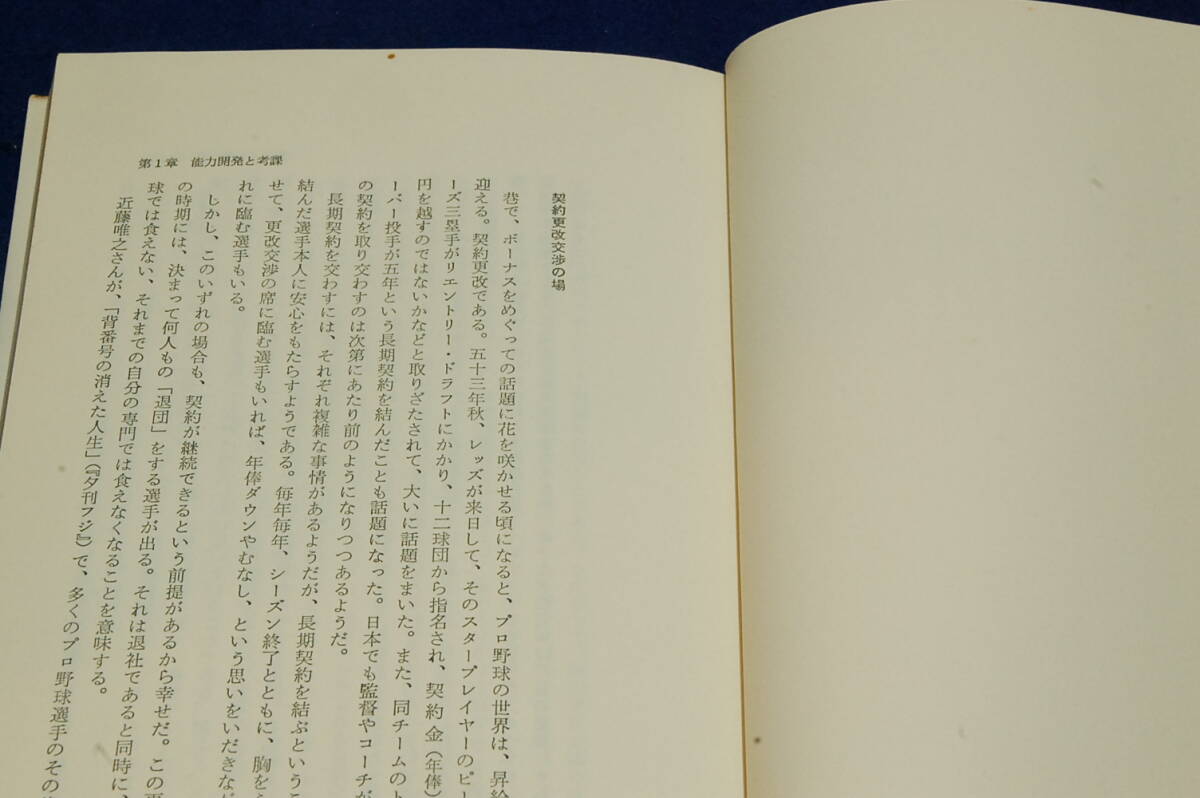 第1章 能力開発と考課
契約更改交渉の場
巷で、ボーナスをめぐっての話題に花を咲かせる頃になると、プロ野球の世界は、昇給
迎える。契約更改である。五十三年秋、レッズが来日して、そのスタープレイヤーのピー
ーズ三塁手がリエントリー・ドラフトにかかり、十二球団から指名され、契約金(年俸)
円を越すのではないかなどと取りざたされて、大いに話題をまいた。また、同チームのト
ーバー投手が五年という長期契約を結んだことも話題になった。日本でも監督やコーチが
の契約を取り交わすのは次第にあたり前のようになりつつあるようだ。
長期契約を交わすには、それぞれ複雑な事情があるようだが、長期契約を結ぶというこ
結んだ選手本人に安心をもたらすようである。毎年毎年、シーズン終了とともに、胸を
せて、更改交渉の席に臨む選手もいれば、年俸ダウンやむなし、という思いをいだきなが
れに臨む選手もいる。
しかし、このいずれの場合も、契約が継続できるという前提があるから幸せだ。この更
の時期には、決まって何人もの「退団」をする選手が出る。それは退社であると同時に、
球では食えない、それまでの自分の専門では食えなくなることを意味する。
近藤唯之さんが、「背番号の消えた人生」(『夕刊フジ』)で、多くのプロ野球選手のその